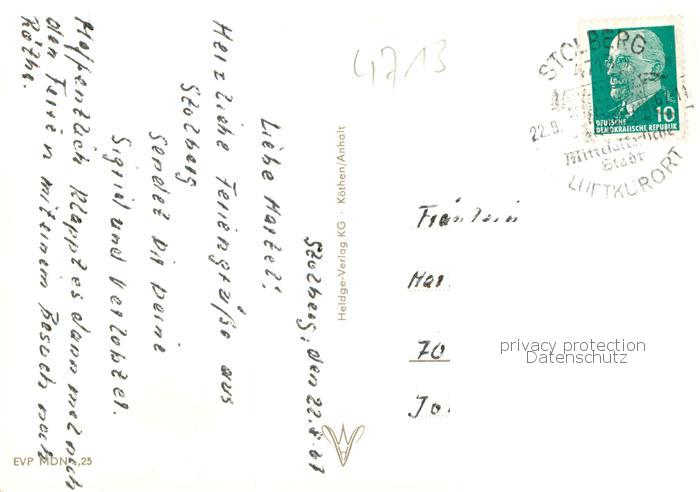 4713
STOLBERG
47
22.8.
Mittelalterliche
Stadt
LUFTKURORT
DEUTSCHE
DEMOKRATISCHE REPUBLIK 10
Stolberg, den 22.8.67
Liebe Margel!
Herzliche Feriengrüße aus
Stolberg
sendet Dir Deine
Sigrid und Verlobter.
Hoffentlich klappt es dann mal nach
den Ferien mit einem Besuch nach
Köthe.
Heldge-Verlag KG · Köthen/Anhalt
Fräulein
Mar
70
Jo
privacy protection
Datenschutz
EVP MDN -,25